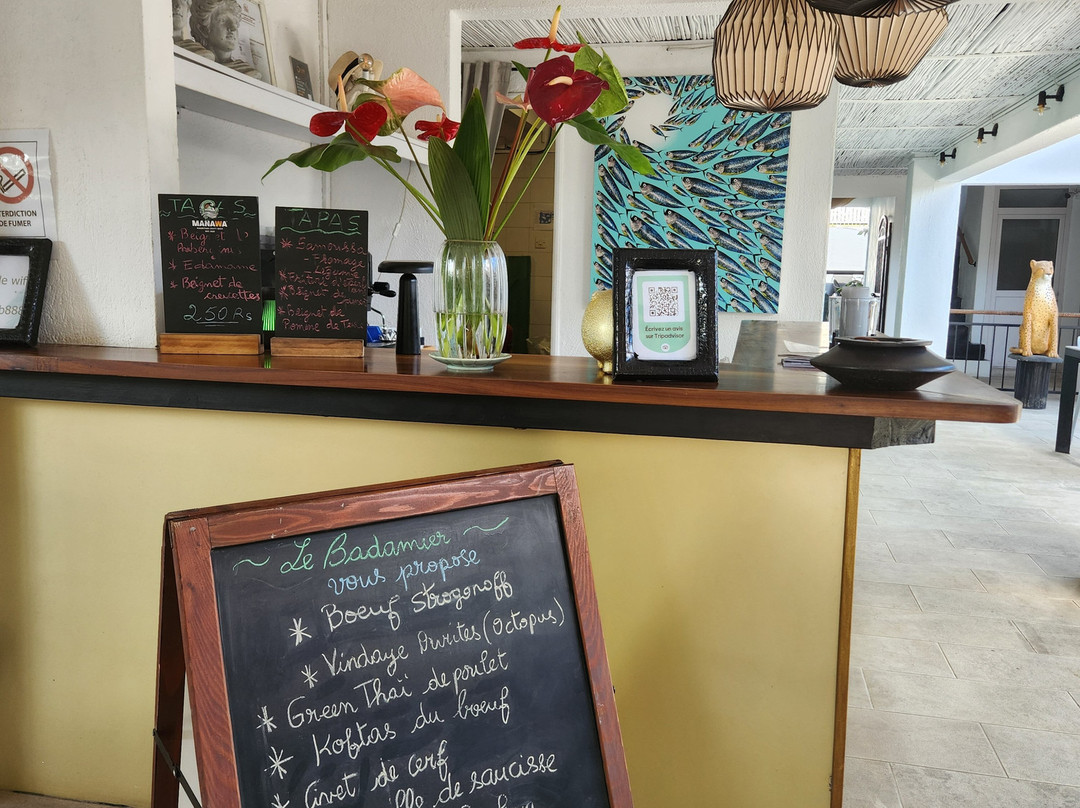 TERDICTION
DE FUMER
le wifi
TAPAS
MANAWA
* Edamame
* Beignet de
crevettes
250 Rs
TAPAS
* Samoussa
- Fromage
- Légume
* Beignet de
Pomme de Terre
Écrivez un avis
sur Tripadvisor
Le Badamier
vous propose
* Boeuf Strogonoff
* Vindaye Ourites (Octopus)
* Green Thaï de poulet
* Koftas du boeuf
* Civet de cerf
de saucisse